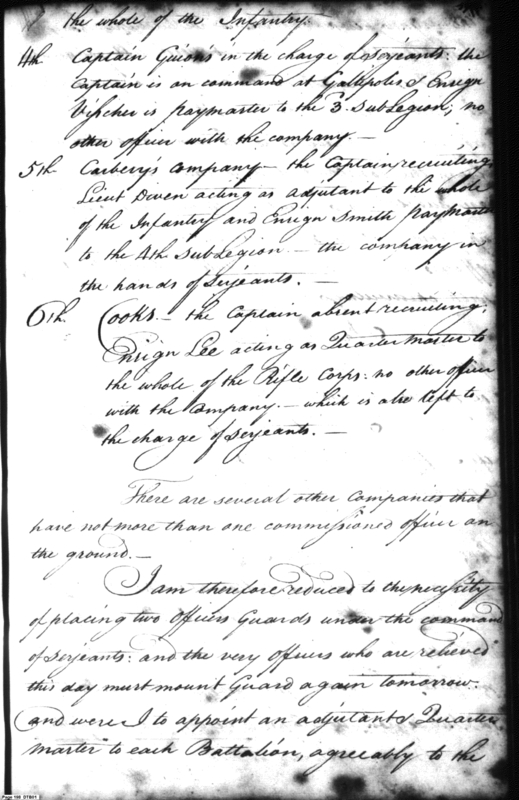 the whole of the Infantry.
4th Captain Guion's in the charge of Serjeants: the
Captain is on command at Gallipolis & Ensign
Visscher is paymaster to the 3. Sub Legion; no
other officer with the company. —
5th Carbery's company — the Captain recruiting,
Lieut Diven acting as adjutant to the whole
of the Infantry and Ensign Smith paymaster
to the 4th Sub Legion — the company in
the hands of Serjeants. —
6th. Cooks. — the Captain absent recruiting;
Ensign Lee acting as Quarter Master to
the whole of the Rifle Corps: no other officer
with the Company. — which is also left to
the charge of Serjeants. —
There are several other Companies that
have not more than one commissioned officer on
the ground. —
I am therefore reduced to the necessity
of placing two officers Guards under the command
of Serjeants: and the very officers who are relieved
this day must mount Guard again tomorrow.
and were I to appoint an adjutant & Quarter
Master to each Battalion, agreeably to the